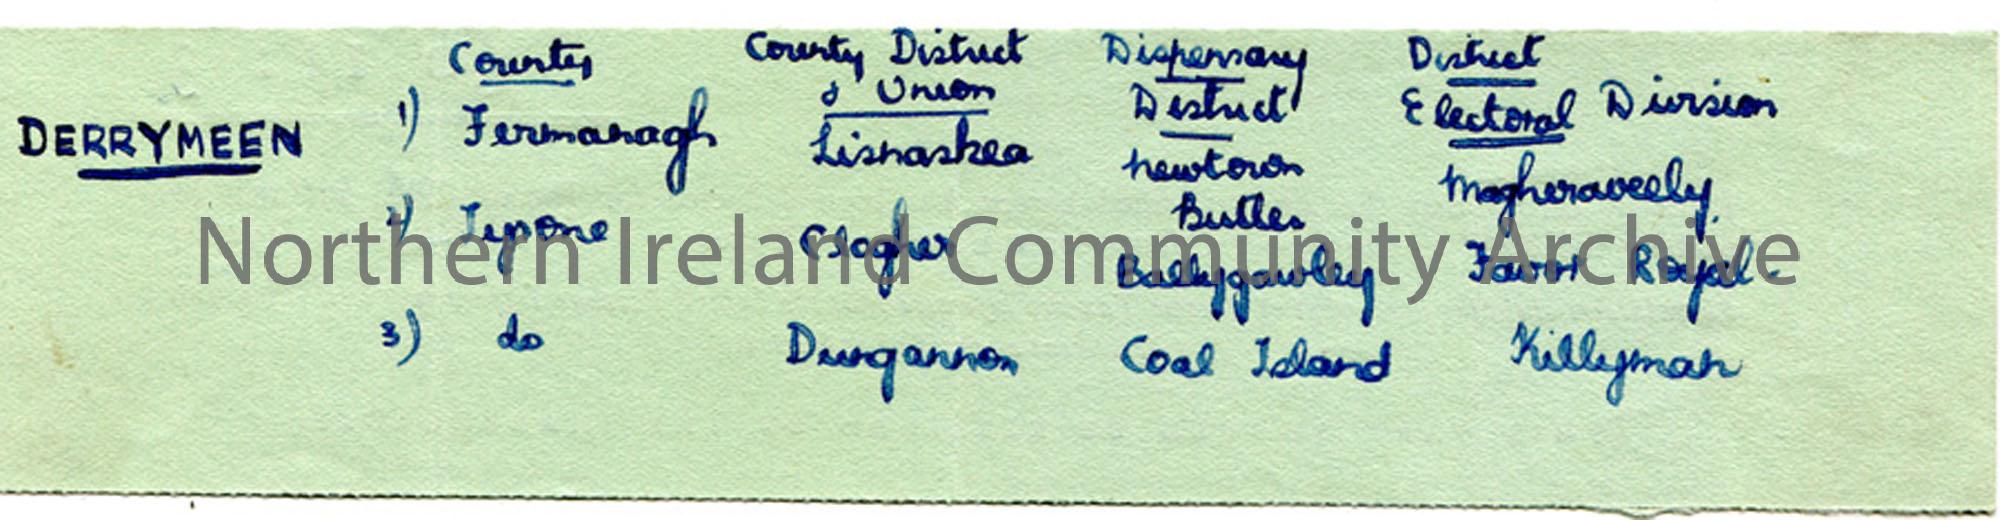 County County District Dispensary District
& Union District Electoral Division
DERRYMEEN 1) Fermanagh Lisnaskea Newtown Butler Magheraveely
2) Tyrone Clogher Ballygawley Favor Royal-
3) do Dungannon Coal Island Killyman
Northern Ireland Community Archive